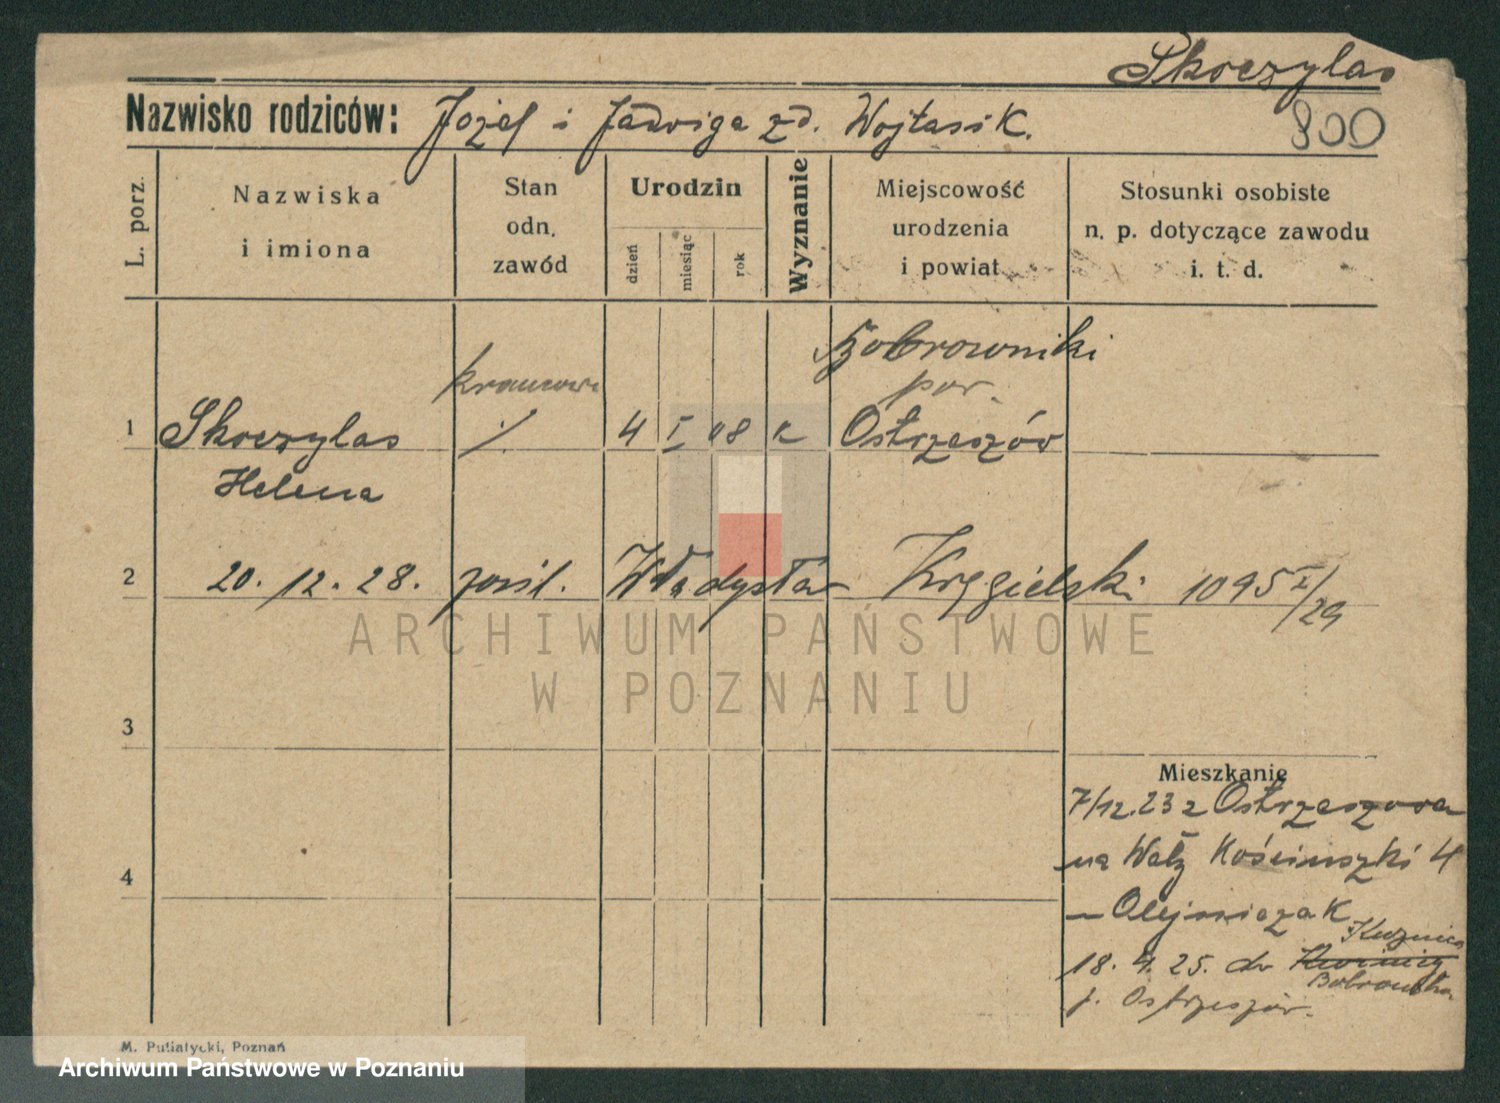 Skoczylas
Nazwisko rodziców: Józef i Jadwiga zd. Wojtasik.
800
L. porz.
Nazwiska
i imiona
Stan
odn.
zawód
Urodzin
dzień
miesiąc
rok
Wyznanie
Miejscowość
urodzenia
i powiat
Stosunki osobiste
n. p. dotyczące zawodu
i. t. d.
Bobrowniki
pow.
1 Skoczylas 4 I 08 k Ostrzeszów
Helena
2 20. 12. 28. pośl. Władysław Kręgielski 1095 I/29
ARCHIWUM PAŃSTWOWE
W POZNANIU
3
Mieszkanie
7/12. 23 z Ostrzeszowa
na Wały Kościuszki 4
4
— Olejniczak
Kuźnica
18. 4. 25. do
Bobrowska
p. Ostrzeszów.
M. Putiatycki, Poznań
Archiwum Państwowe w Poznaniu